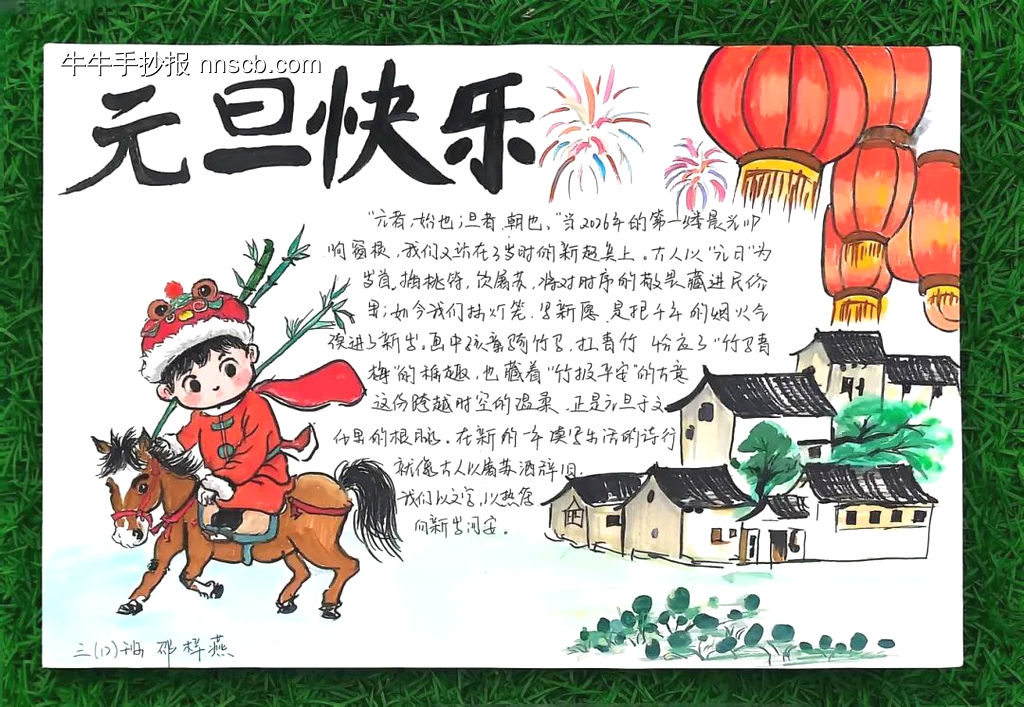 牛牛手抄报 nnscb.com
元旦快乐
“元者，始也；旦者，朝也。”当2026年的第一缕晨光叩
响窗棂，我们又站在了岁时的新起点上。古人以“元日”为
岁首，插桃符，饮屠苏，将对时序的敬畏藏进民俗
里；如今我们挂灯笼，写新愿，是把千年的烟火气
续进了新岁。画中孩童骑竹马，扛青竹，恰应了“竹马青
梅”的稚趣，也藏着“竹报平安”的古意
这份跨越时空的温柔，正是元旦于文
化里的根脉。在新的一年续写生活的诗行
就像古人以屠苏酒辞旧，
我们以文字，以热爱
向新岁问安。
三(12)班 邵梓燕